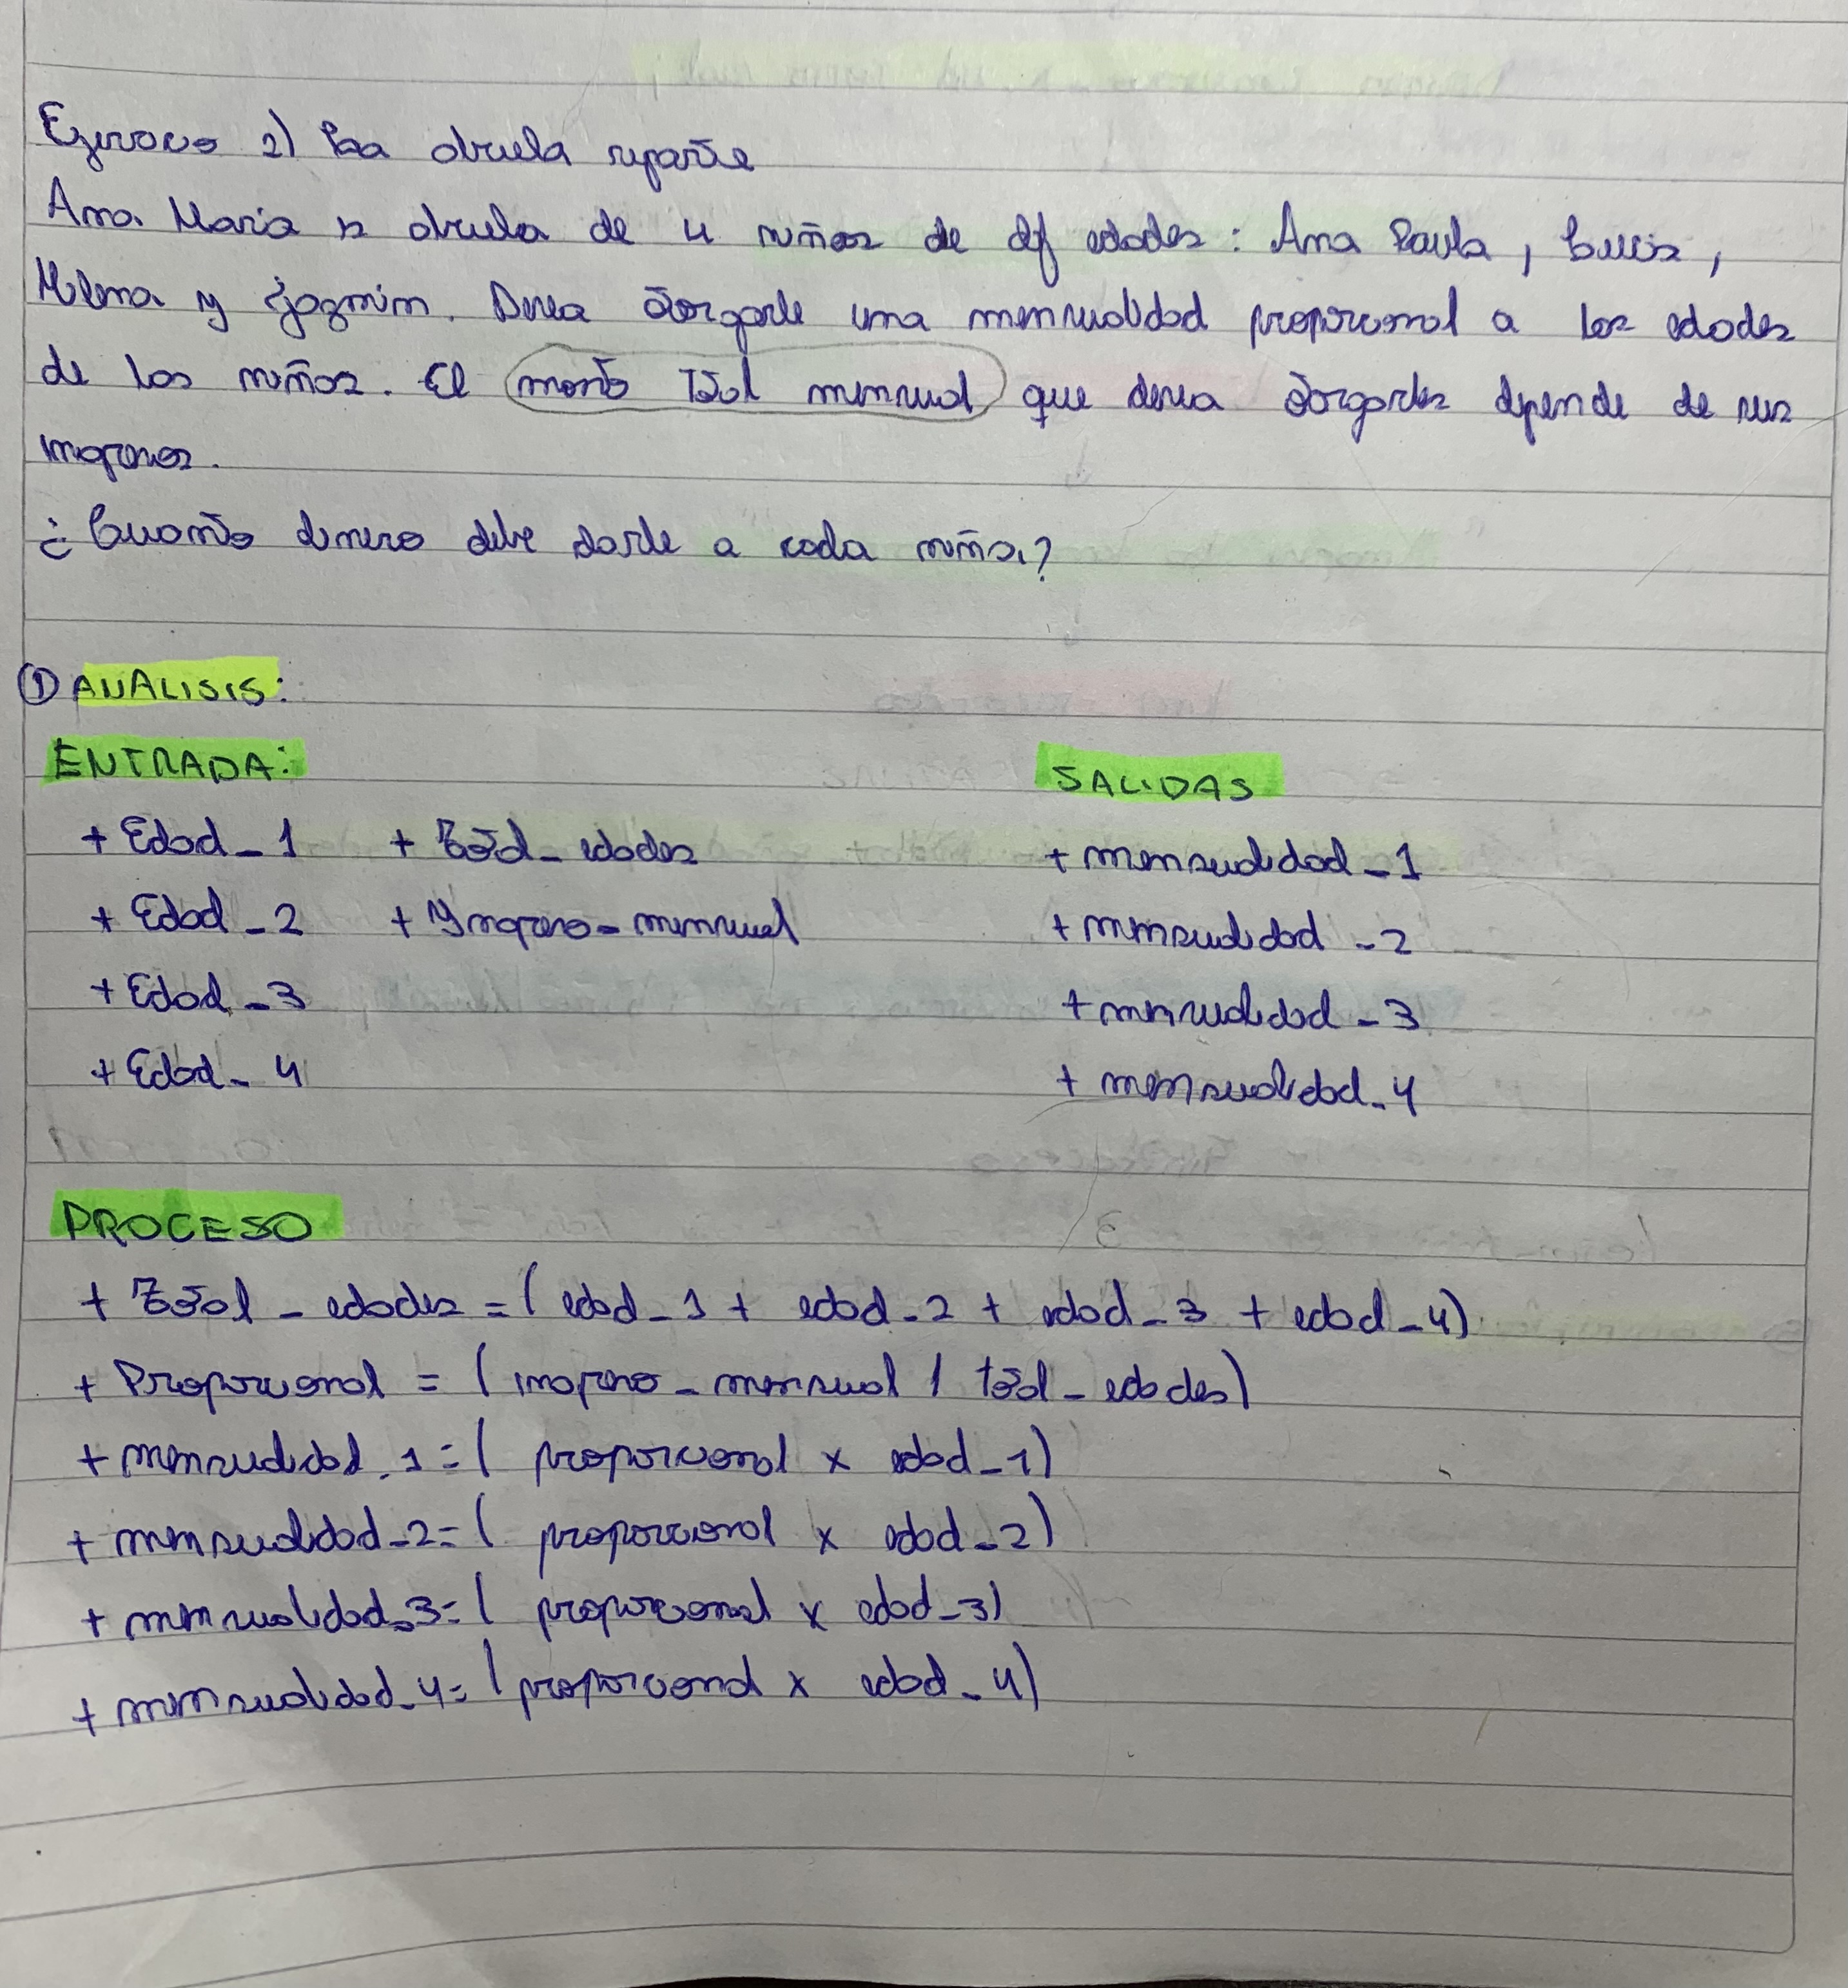 Ejercicio 2) La abuela reparte
Ana Maria es abuela de 4 niños de dif edades: Ana Paula, Luis,
Milena y Jazmin. Desea otorgarle una mensualidad proporcional a las edades
de los niños. El monto total mensual que desea otorgarles depende de sus
ingresos.
¿Cuanto dinero debe darle a cada niño?
① ANALISIS:
ENTRADA: SALIDAS
+ Edad_1 + Total_edades + mensualidad_1
+ Edad_2 + Ingreso_mensual + mensualidad_2
+ Edad_3 + mensualidad_3
+ Edad_4 + mensualidad_4
PROCESO
+ Total_edades = (edad_1 + edad_2 + edad_3 + edad_4)
+ Proporcional = (ingreso_mensual / total_edades)
+ mensualidad_1 = (proporcional x edad_1)
+ mensualidad_2 = (proporcional x edad_2)
+ mensualidad_3 = (proporcional x edad_3)
+ mensualidad_4 = (proporcional x edad_4)